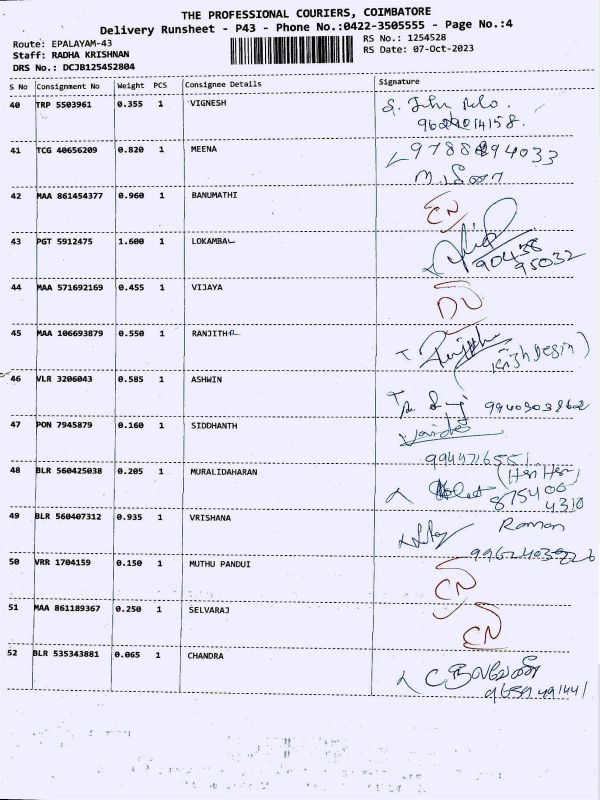 THE PROFESSIONAL COURIERS, COIMBATORE
Delivery Runsheet - P43 - Phone No.:0422-3505555 - Page No.:4
Route: EPALAYAM-43 RS No.: 1254528
Staff: RADHA KRISHNAN RS Date: 07-Oct-2023
DRS No.: DCJB125452804
S No Consignment No Weight PCS Consignee Details Signature
40 TRP 5503961 0.355 1 VIGNESH
41 TCG 40656209 0.820 1 MEENA
மீனா
42 MAA 861454377 0.960 1 BANUMATHI CN
43 PGT 5912475 1.600 1 LOKAMBAL
90438
95032
44 MAA 571692169 0.455 1 VIJAYA
45 MAA 106693879 0.550 1 RANJITHR
46 VLR 3206043 0.585 1 ASHWIN
9940903862
47 PON 7945879 0.160 1 SIDDHANTH
9944716551
48 BLR 560425038 0.205 1 MURALIDAHARAN
875400
4310
49 BLR 560407312 0.935 1 VRISHANA Raman
50 VRR 1704159 0.150 1 MUTHU PANDUI CN
51 MAA 861189367 0.250 1 SELVARAJ CN
52 BLR 535343881 0.065 1 CHANDRA